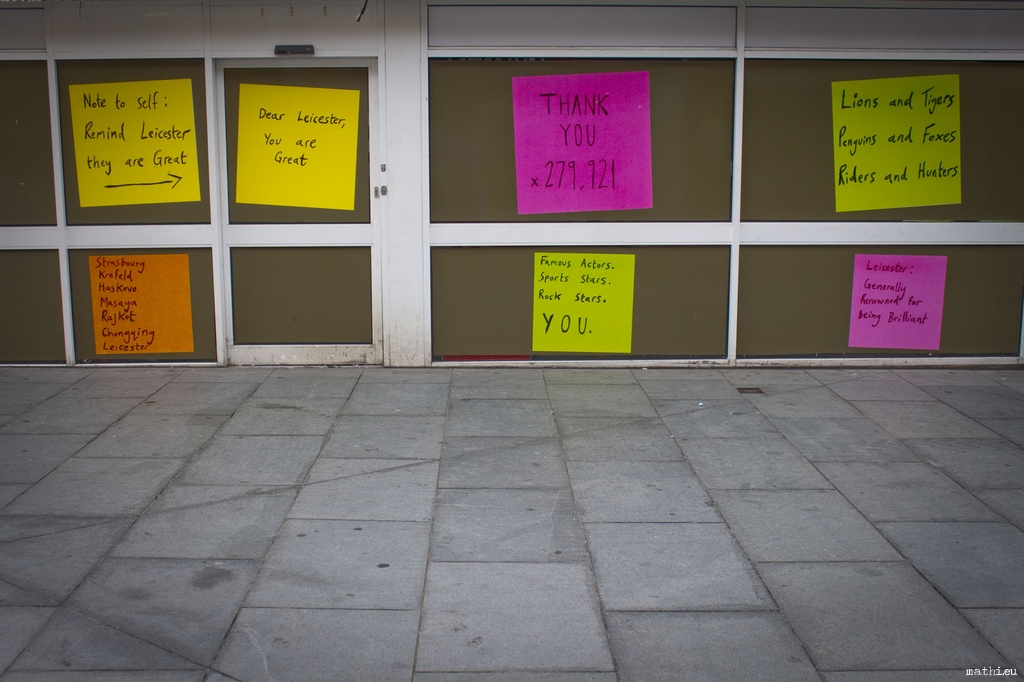 Note to self:
Remind Leicester
they are Great
Dear Leicester,
You are
Great
THANK
YOU
x 279,921
Lions and Tigers
Penguins and Foxes
Riders and Hunters
Strasbourg
Krefeld
Haskovo
Masaya
Rajkot
Chongqing
Leicester
Famous Actors.
Sports Stars.
Rock Stars.
YOU.
Leicester:
Generally
Renowned for
being Brilliant
mathi.eu